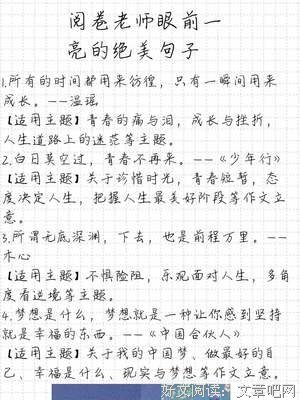 阅卷老师眼前一
亮的绝美句子
1.所有的时间都用来彷徨，只有一瞬间用来
成长。--温瑶
【适用主题】青春的痛与泪，成长与挫折，
人生道路上的迷茫等主题。
2.白日莫空过，青春不再来。--《少年行》
【适用主题】关于珍惜时光，青春短暂，态
度决定人生，把握人生最美好阶段等作文立
意。
3.所谓无底深渊，下去，也是前程万里。--
木心
【适用主题】不惧险阻，乐观面对人生，多角
度看逆境等主题。
4.梦想是什么，梦想就是一种让你感到坚持
就是幸福的东西。--《中国合伙人》
【适用主题】关于我的中国梦、做最好的自
己、幸福是什么、现实与梦想等作文立意。
好文阅读：文章吧网